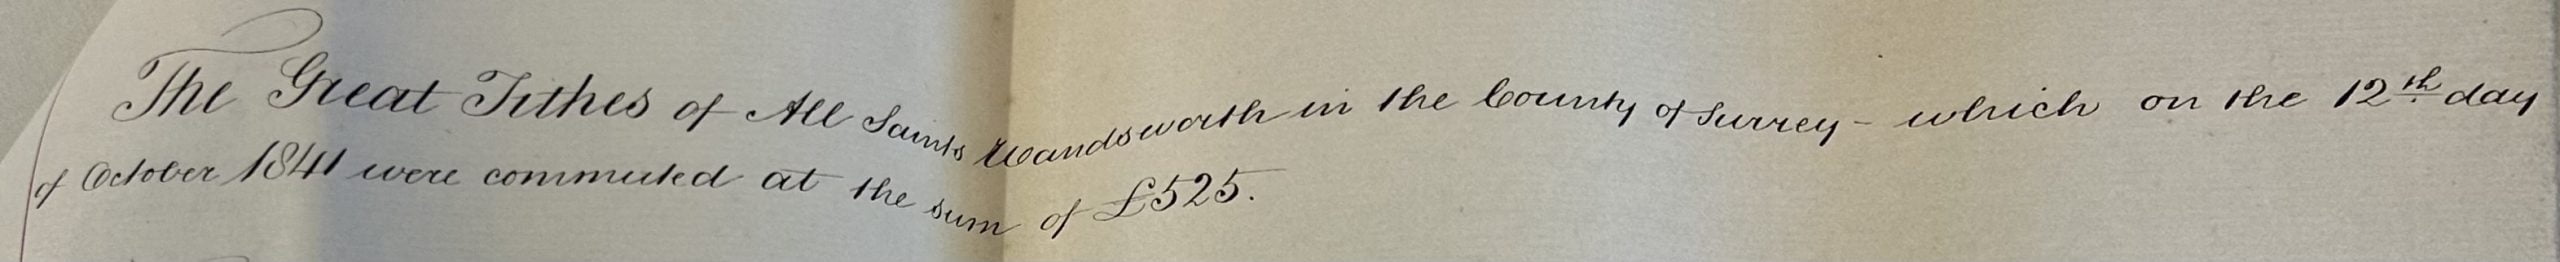 The Great Tithes of All Saints Wandsworth in the County of Surrey - which on the 12th day
of October 1841 were commuted at the sum of £525.